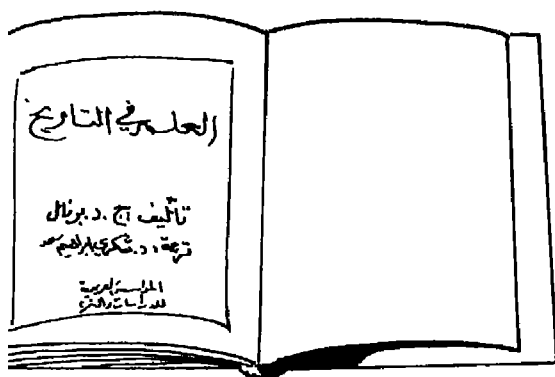 العلم في التاريخ
تأليف ج . د . برنال
ترجمة : د . شكري إبراهيم سعد
المؤسسة العربية
للدراسات والنشر